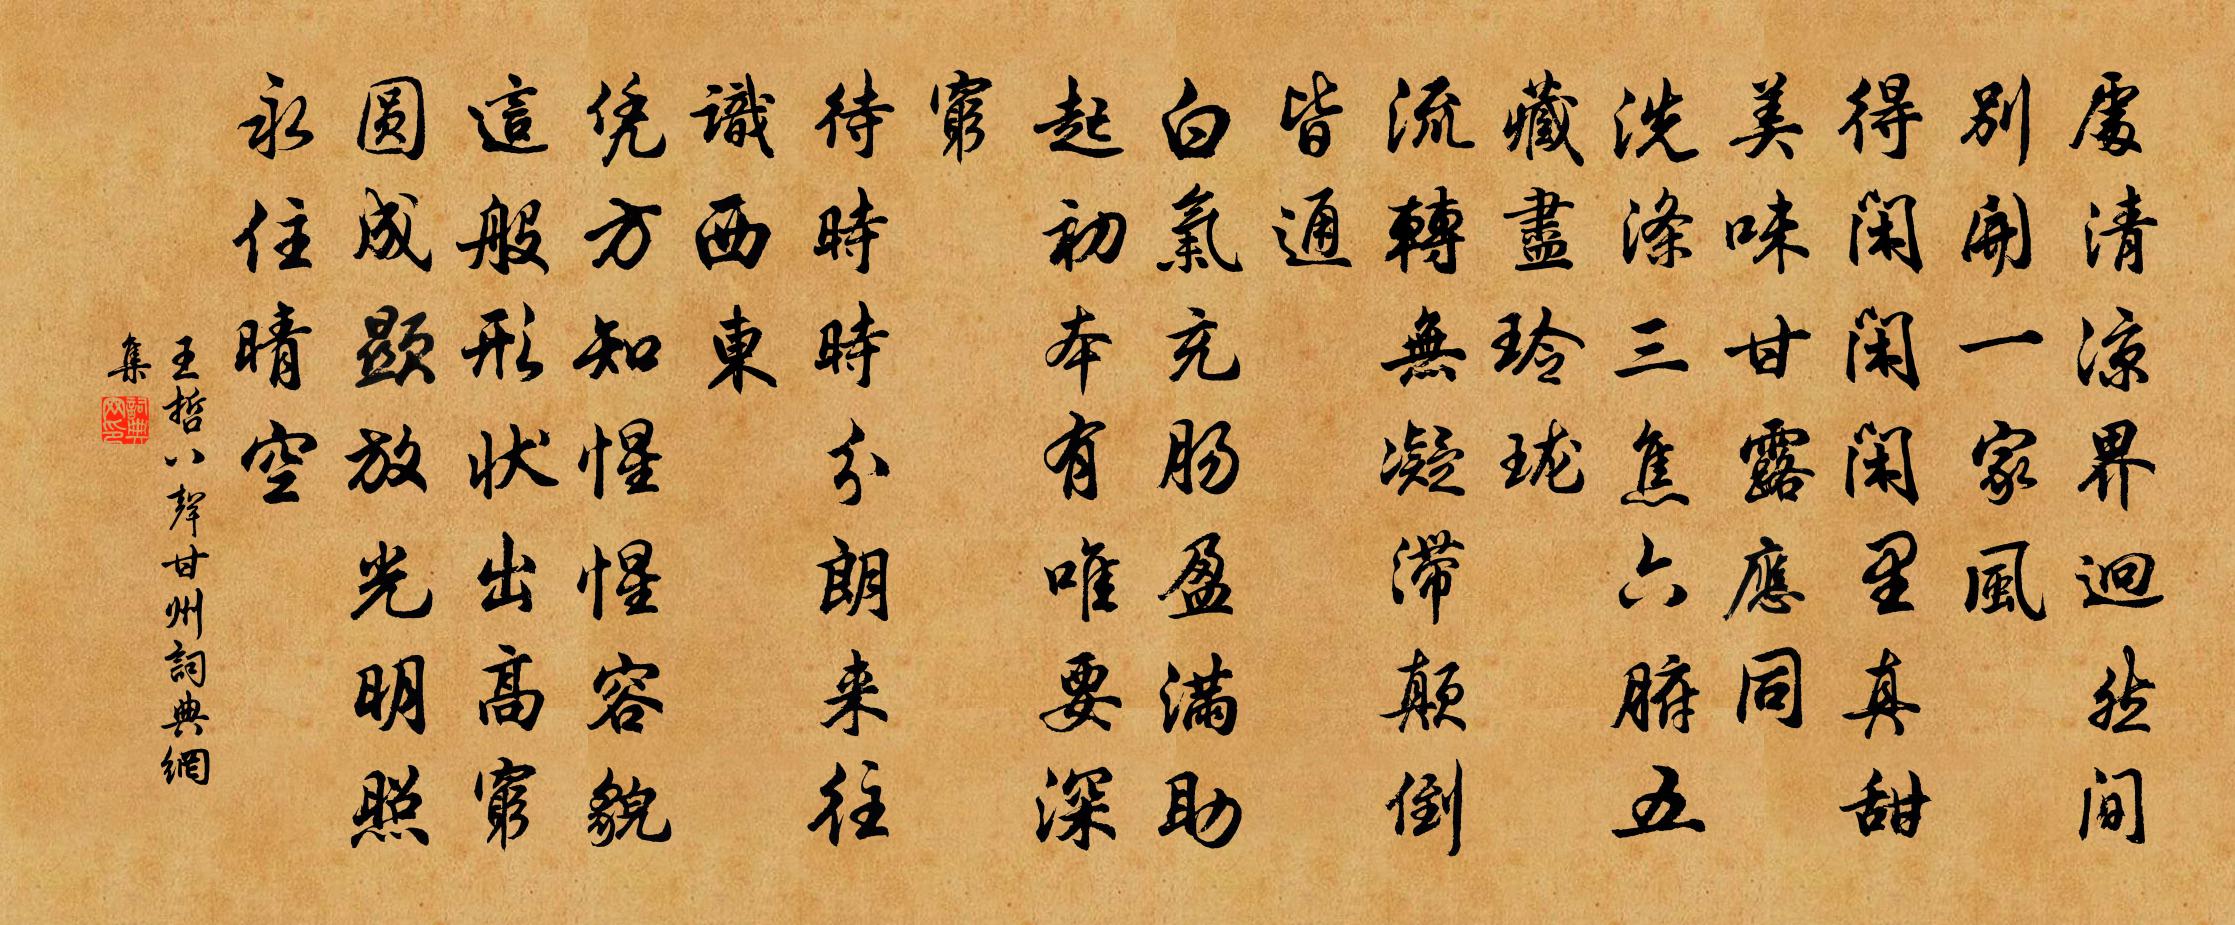 處清涼界迥然間
別開一家風
得閑閑閑里真甜
美味甘露應同
洗滌三焦六腑五
藏盡玲瓏
流轉無凝滯顛倒
皆通
白氣充腸盈滿助
起初本有唯要深
窮
待時時分朗来往
識西東
凭方知惺惺容貌
這般形状出高窮
圓成顯放光明照
永住晴空
王哲八聲甘州詞典網
集
詞典网印